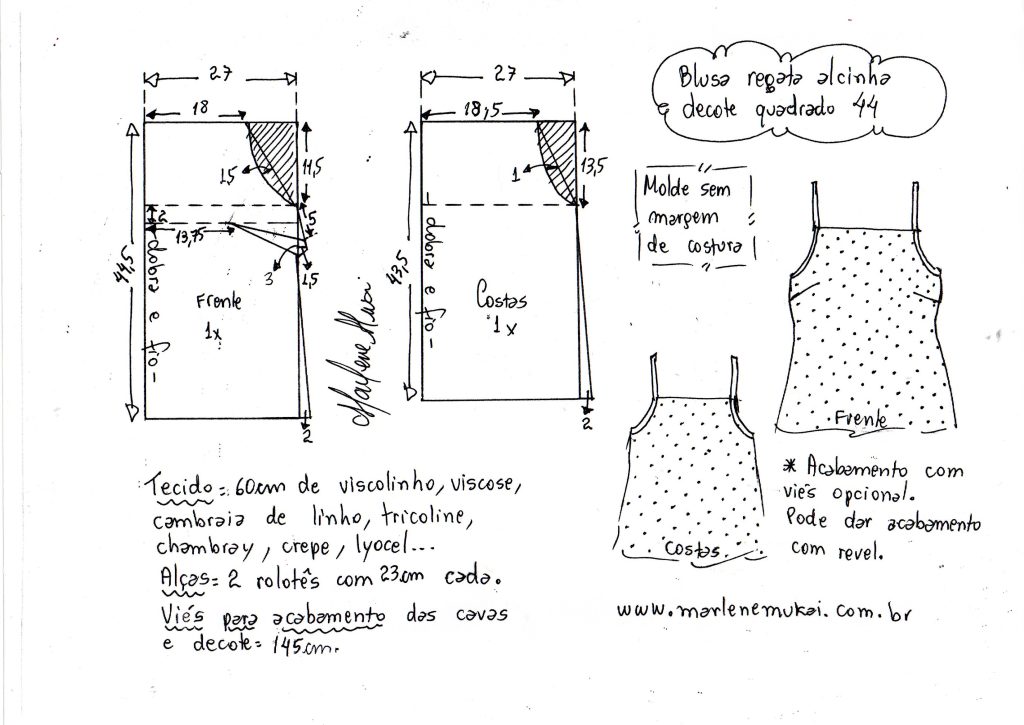 27
18
15
11,5
2
13,75
5
3
1,5
44,5
dobra e fio
Frente
1x
2
Marlene Mukai
27
18,5
1
13,5
43,5
dobra e fio
Costas
1x
2
Blusa regata alcinha
e decote quadrado 44
Molde sem
margem
de costura
Frente
Costas
* Acabamento com
viés opcional.
Pode dar acabamento
com revel.
www.marlenemukai.com.br
Tecido = 60cm de viscolinho, viscose,
cambraia de linho, tricoline,
chambray, crepe, lyocel...
Alças = 2 rolotês com 23cm cada.
Viés para acabamento das cavas
e decote = 145cm.